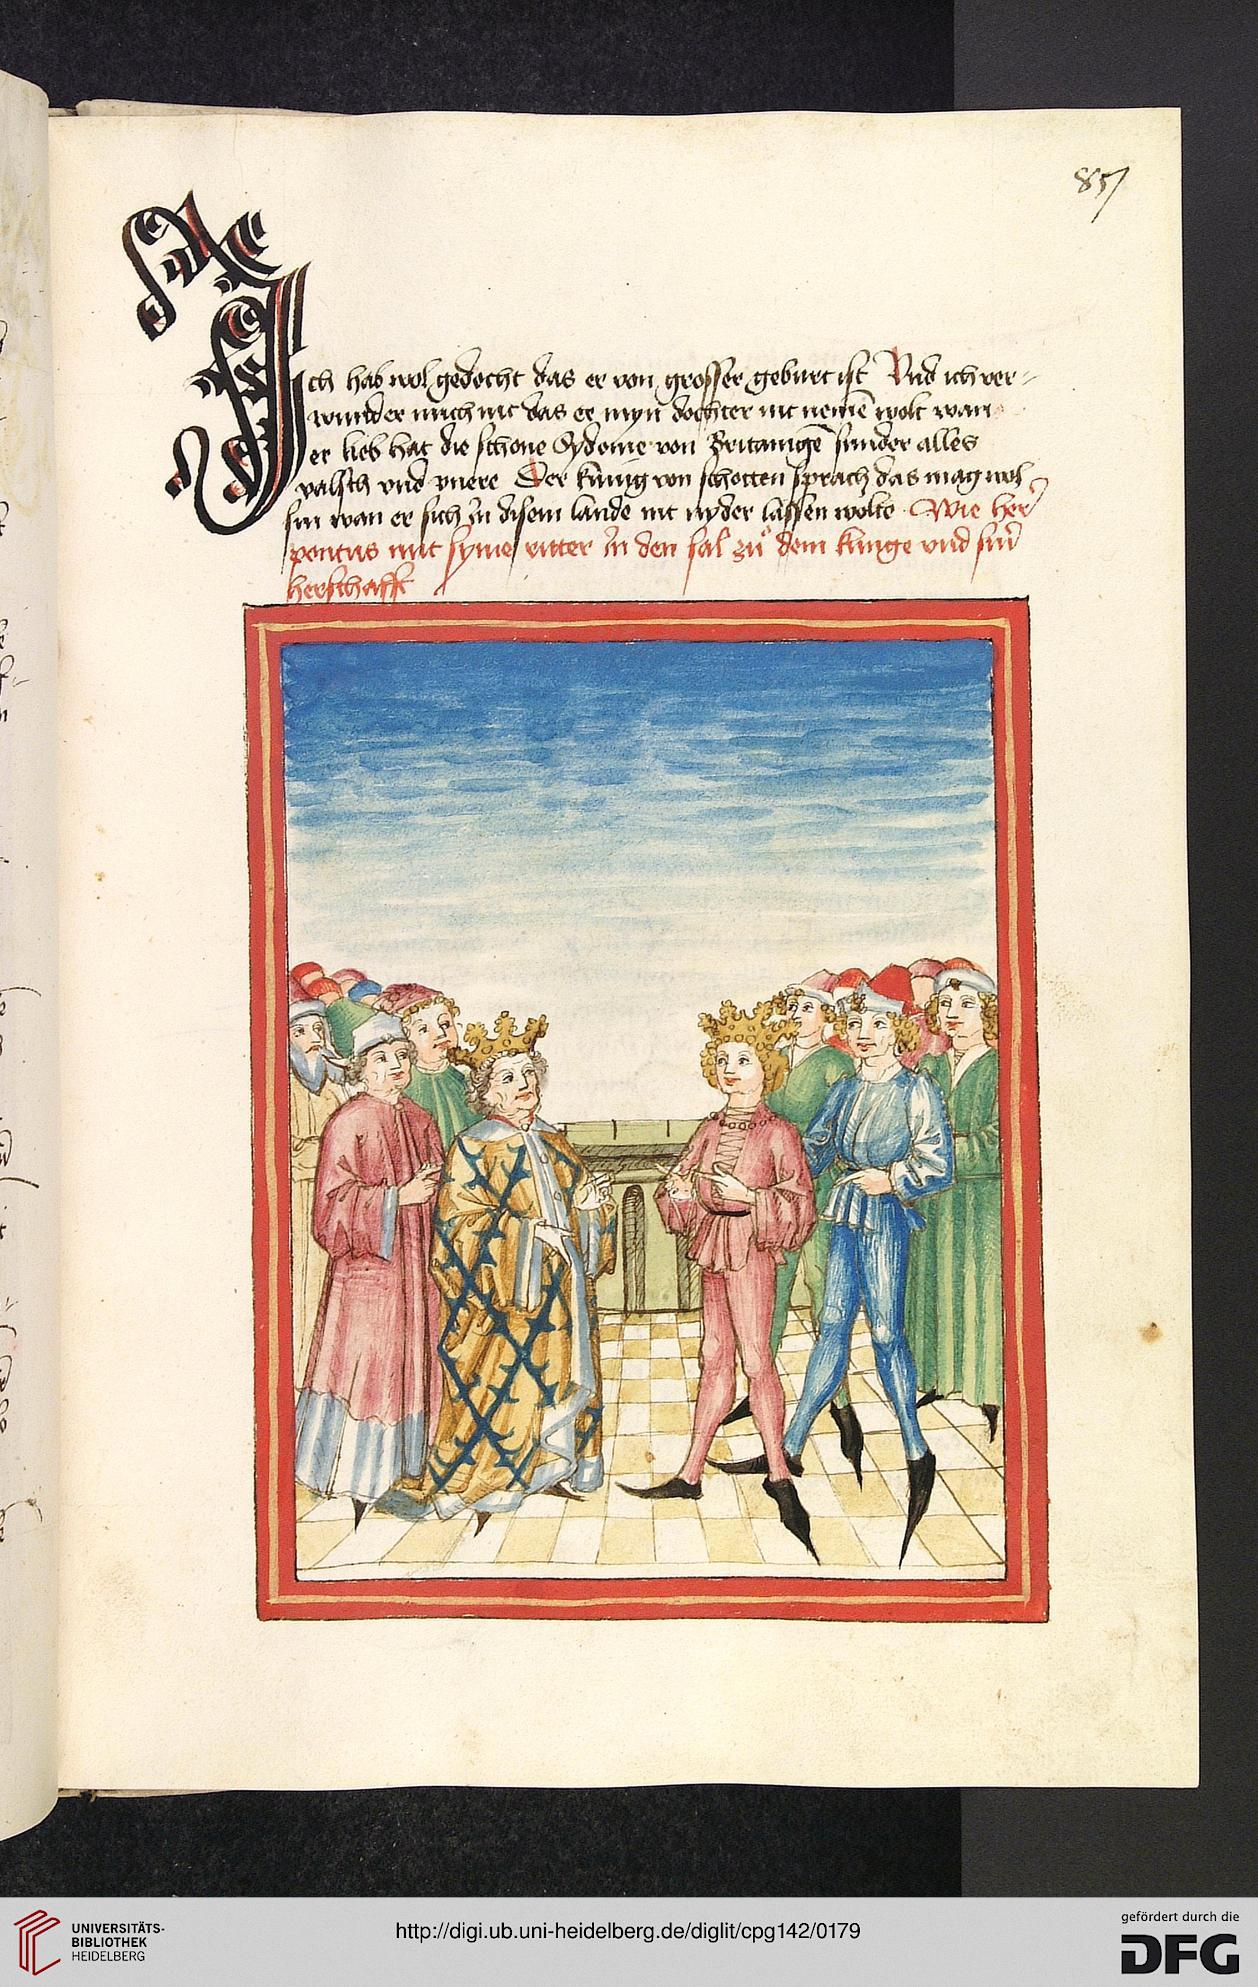 85
Ich hab wol gedocht das er von grosser geburt ist Vnd ich ver-
wunder mich nit das er myn dochter nit nemē wolt wan
er lieb hat die schone Sydonie von Britanigē sunder alles
valsch vnd vnere Der kunig von schotten sprach das mag wol
sin wan er sich in disem lande nit nyder lassen wolte Wie her
pontus mit syme ritter in den sal zů dem kunge vnd sin̄
herschafft
UNIVERSITÄTS-
BIBLIOTHEK
HEIDELBERG
http://digi.ub.uni-heidelberg.de/diglit/cpg142/0179
gefördert durch die
DFG